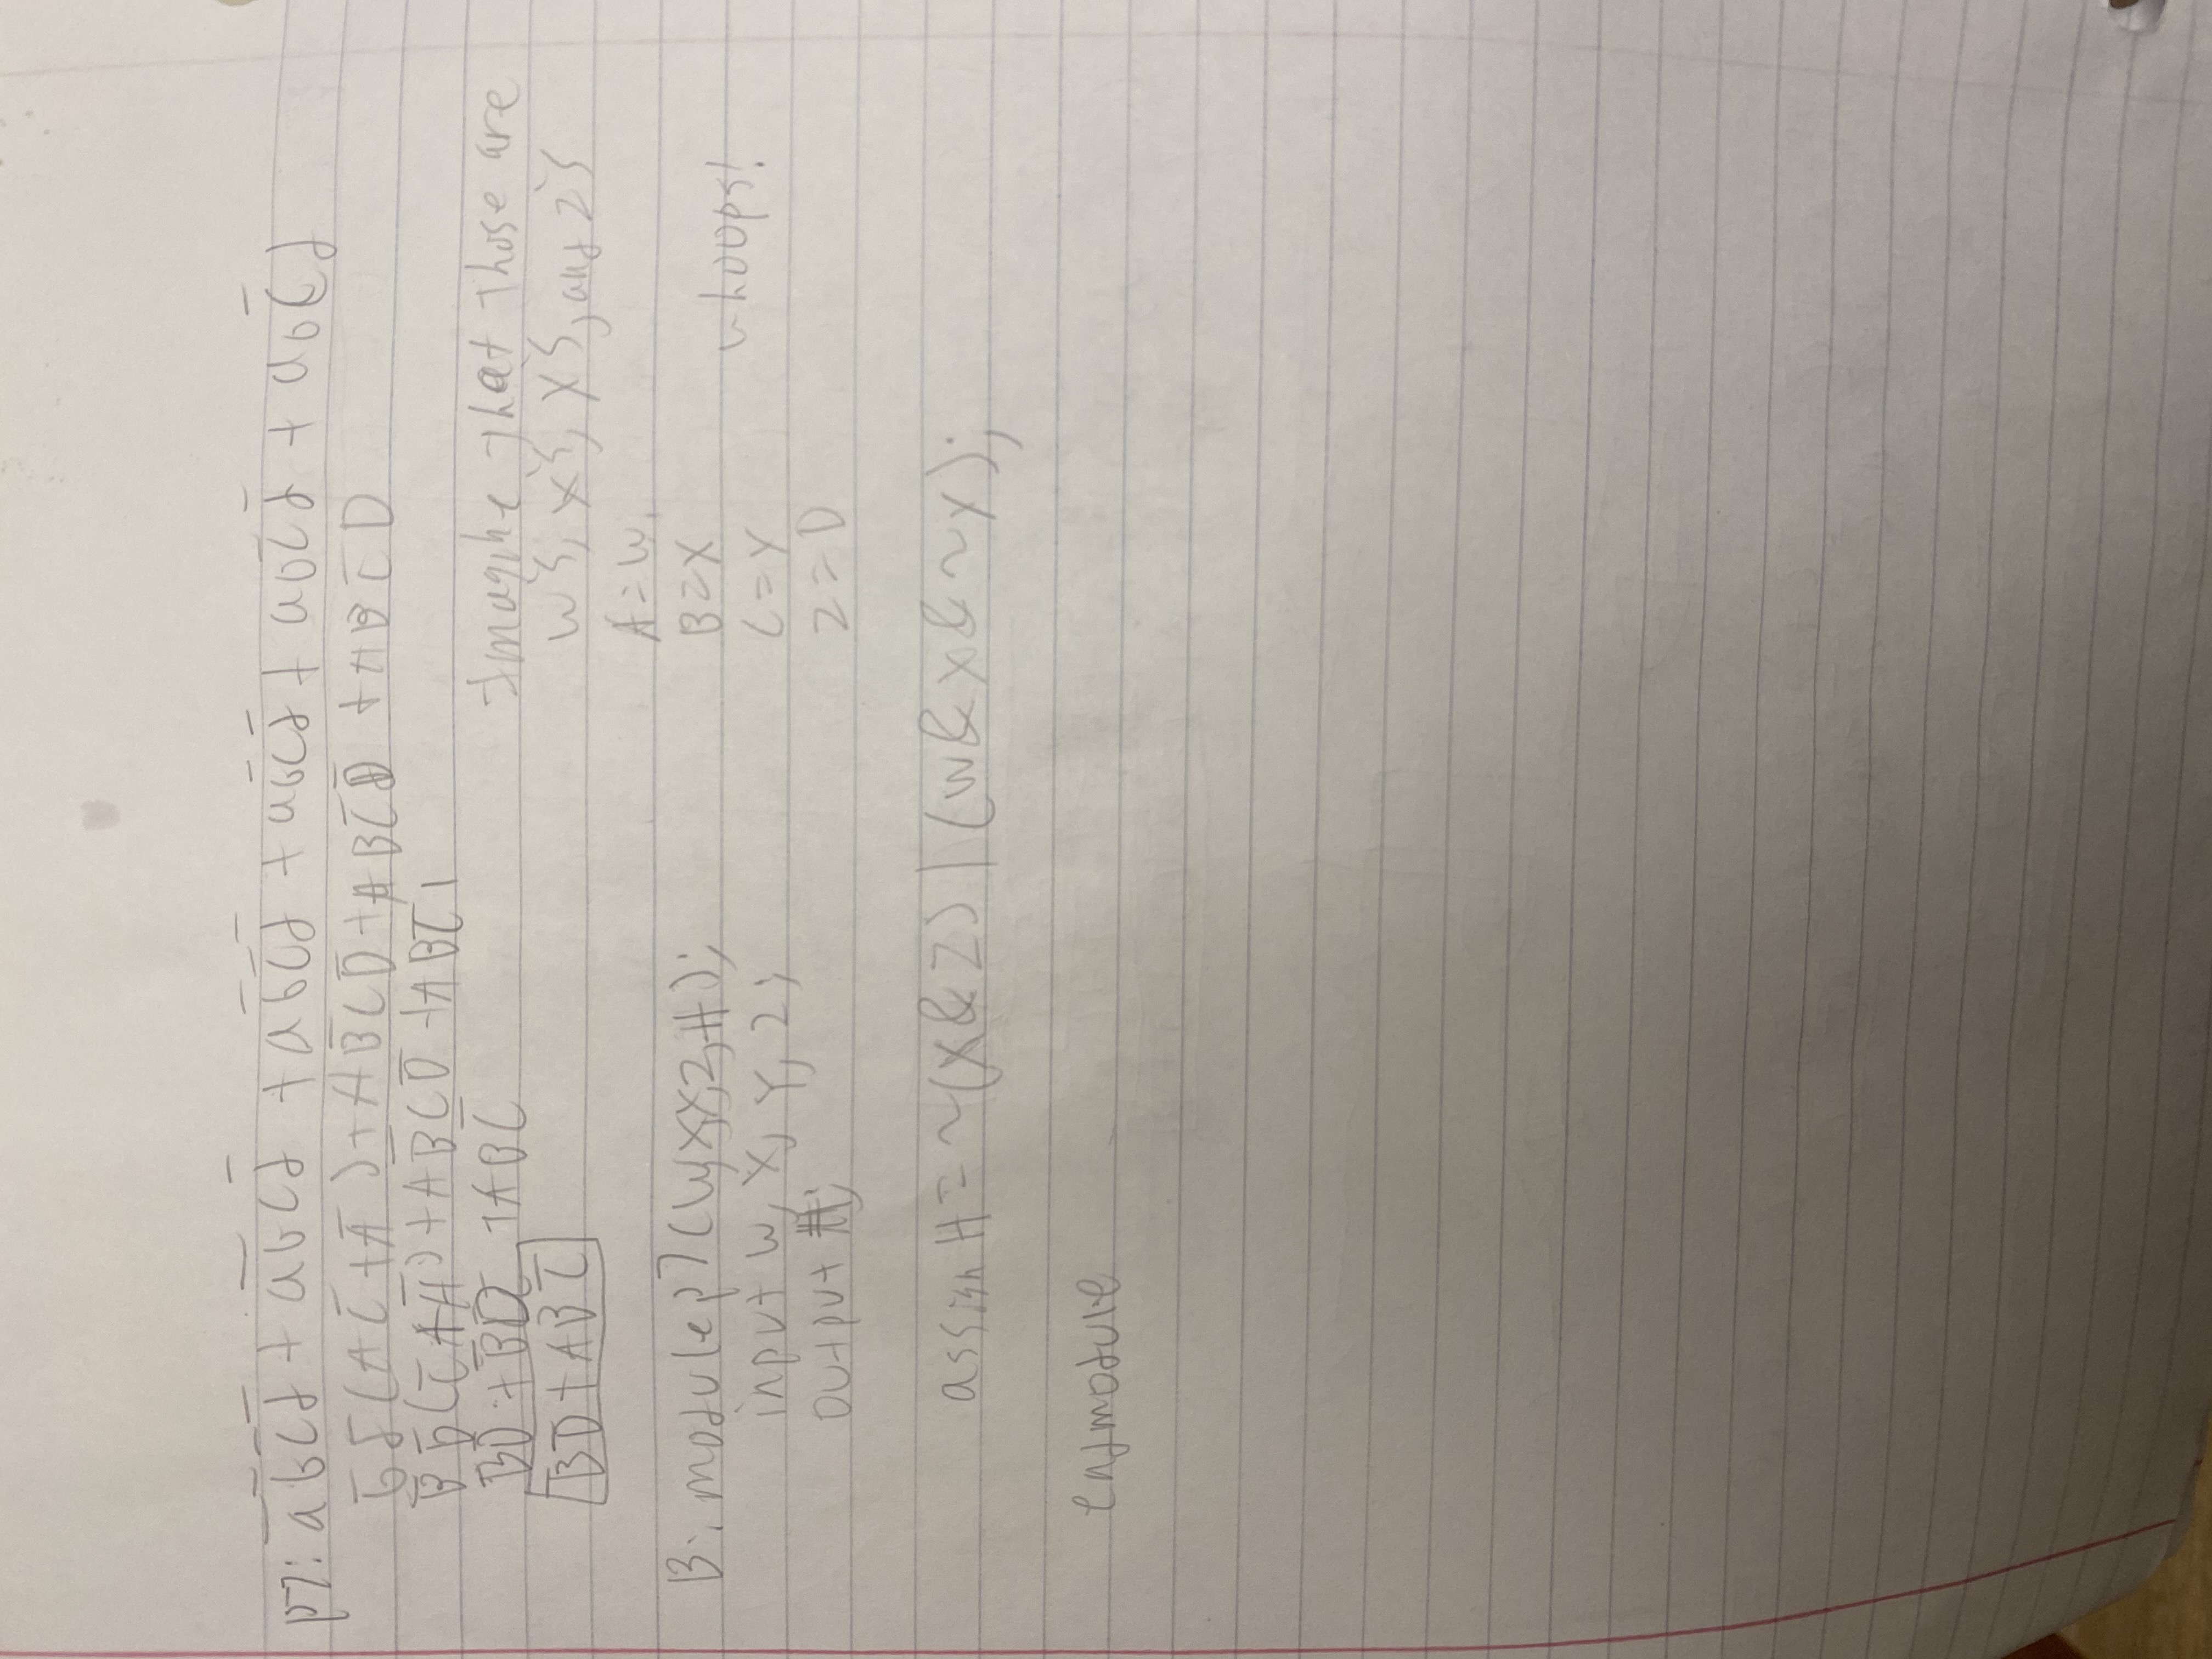 p7: a̅b̅c̅d̅ + a̅b̅cd̅ + ab̅c̅d̅ + ab̅cd̅ + abc̅d̅ + abc̅d
b̅d̅(A̅C̅+A̅)+AB̅CD̅+ABC̅D̅+ABC̅D
B̅D̅(C̅A̅A̅)+AB̅CD̅+ABC̅
B̅D̅+B̅D̅+ABC̅
B̅D̅+ABC̅
Imagine that those are
w's, x's, Y's, and z's
A=w
B=X
C=Y whoops!
Z=D
B: module p7(w,x,y,z,H);
input w, x, y, z;
output H;
assign H = ~(x&z)|(w&x&~y);
endmodule